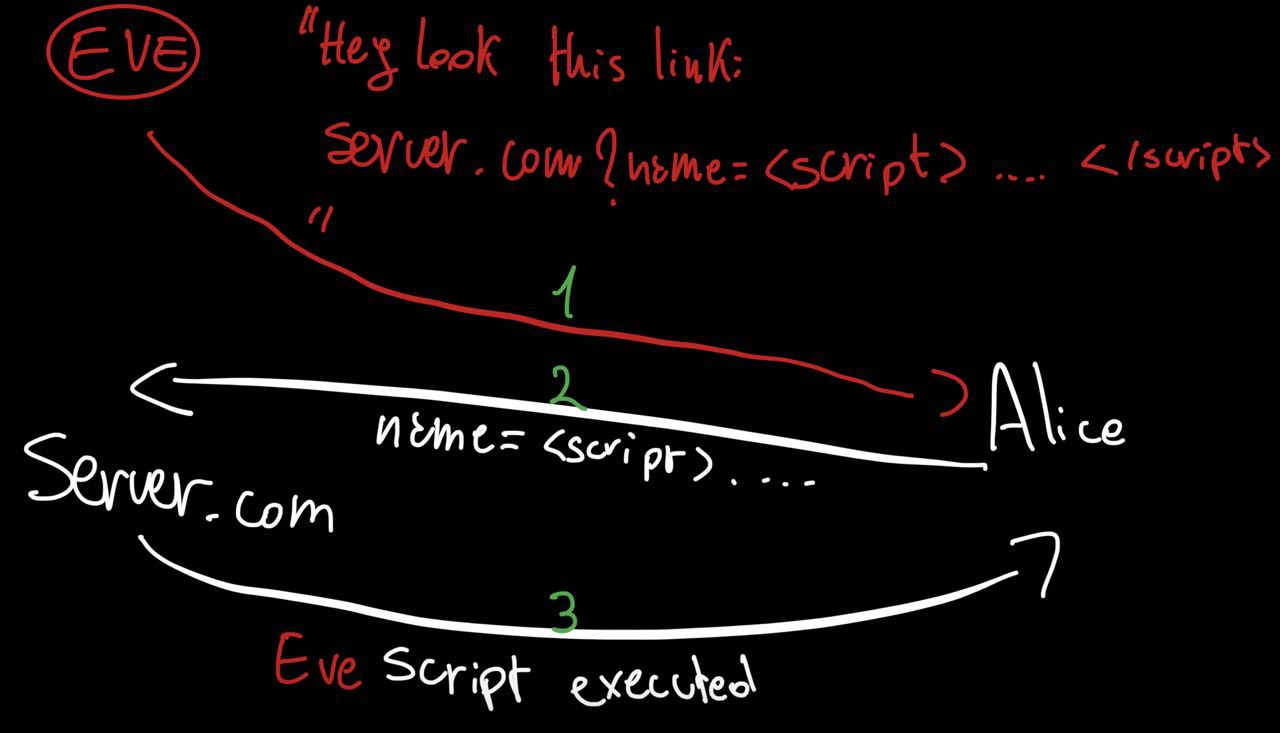 EVE "Hey look this link:
server.com?name=<script> .... </script>
"
1
2
Alice
name=<script>.....
Server.com
3
Eve Script executed